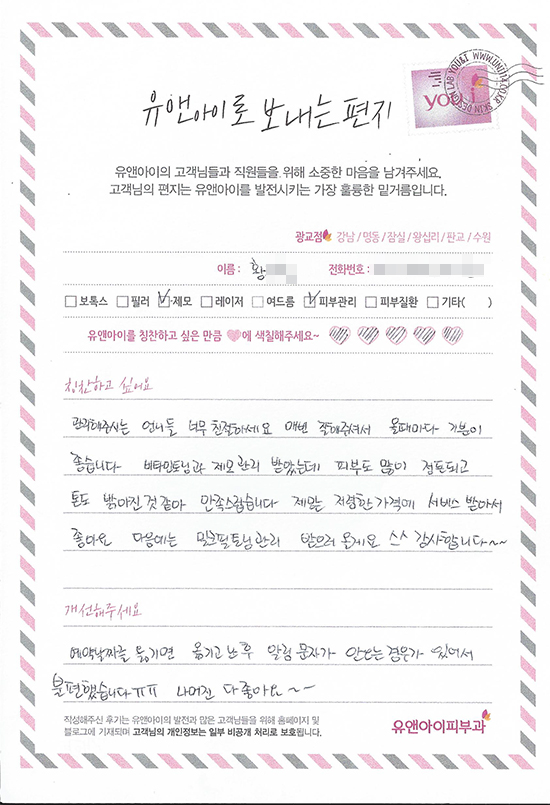 YOU&I WWW.UNI114.CO.KR SKIN DESIGN LAB
you i
유앤아이로 보내는 편지
유앤아이의 고객님들과 직원들을 위해 소중한 마음을 남겨주세요.
고객님의 편지는 유앤아이를 발전시키는 가장 훌륭한 밑거름입니다.
광교점 강남 / 명동 / 잠실 / 왕십리 / 판교 / 수원
이름 : 황 전화번호 :
보톡스 필러 제모 레이저 여드름 피부관리 피부질환 기타( )
유앤아이를 칭찬하고 싶은 만큼 에 색칠해주세요~
칭찬하고 싶어요
관리해주시는 언니들 너무 친절하세요 매번 잘해주셔서 올때마다 기분이
좋습니다 비타민토닝과 제모관리 받았는데 피부도 많이 정돈되고
톤도 밝아진것 같아 만족스럽습니다 제모는 저렴한 가격에 서비스 받아서
좋아요 다음에는 밀크필토닝관리 받으러 올게요 ^^ 감사합니다~~
개선해주세요
예약날짜를 옮기면 옮기고 난 후 알림 문자가 안오는 경우가 있어서
불편했습니다ㅠㅠ 나머진 다 좋아요~~
작성해주신 후기는 유앤아이의 발전과 많은 고객님들을 위해 홈페이지 및
블로그에 기재되며 고객님의 개인정보는 일부 비공개 처리로 보호됩니다.
유앤아이피부과